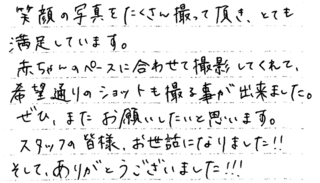 笑顔の写真をたくさん撮って頂き、とても
満足しています。
赤ちゃんのペースに合わせて撮影してくれて、
希望通りのショットも撮る事が出来ました。
ぜひ、またお願いしたいと思います。
スタッフの皆様、お世話になりました!!
そして、ありがとうございました!!!